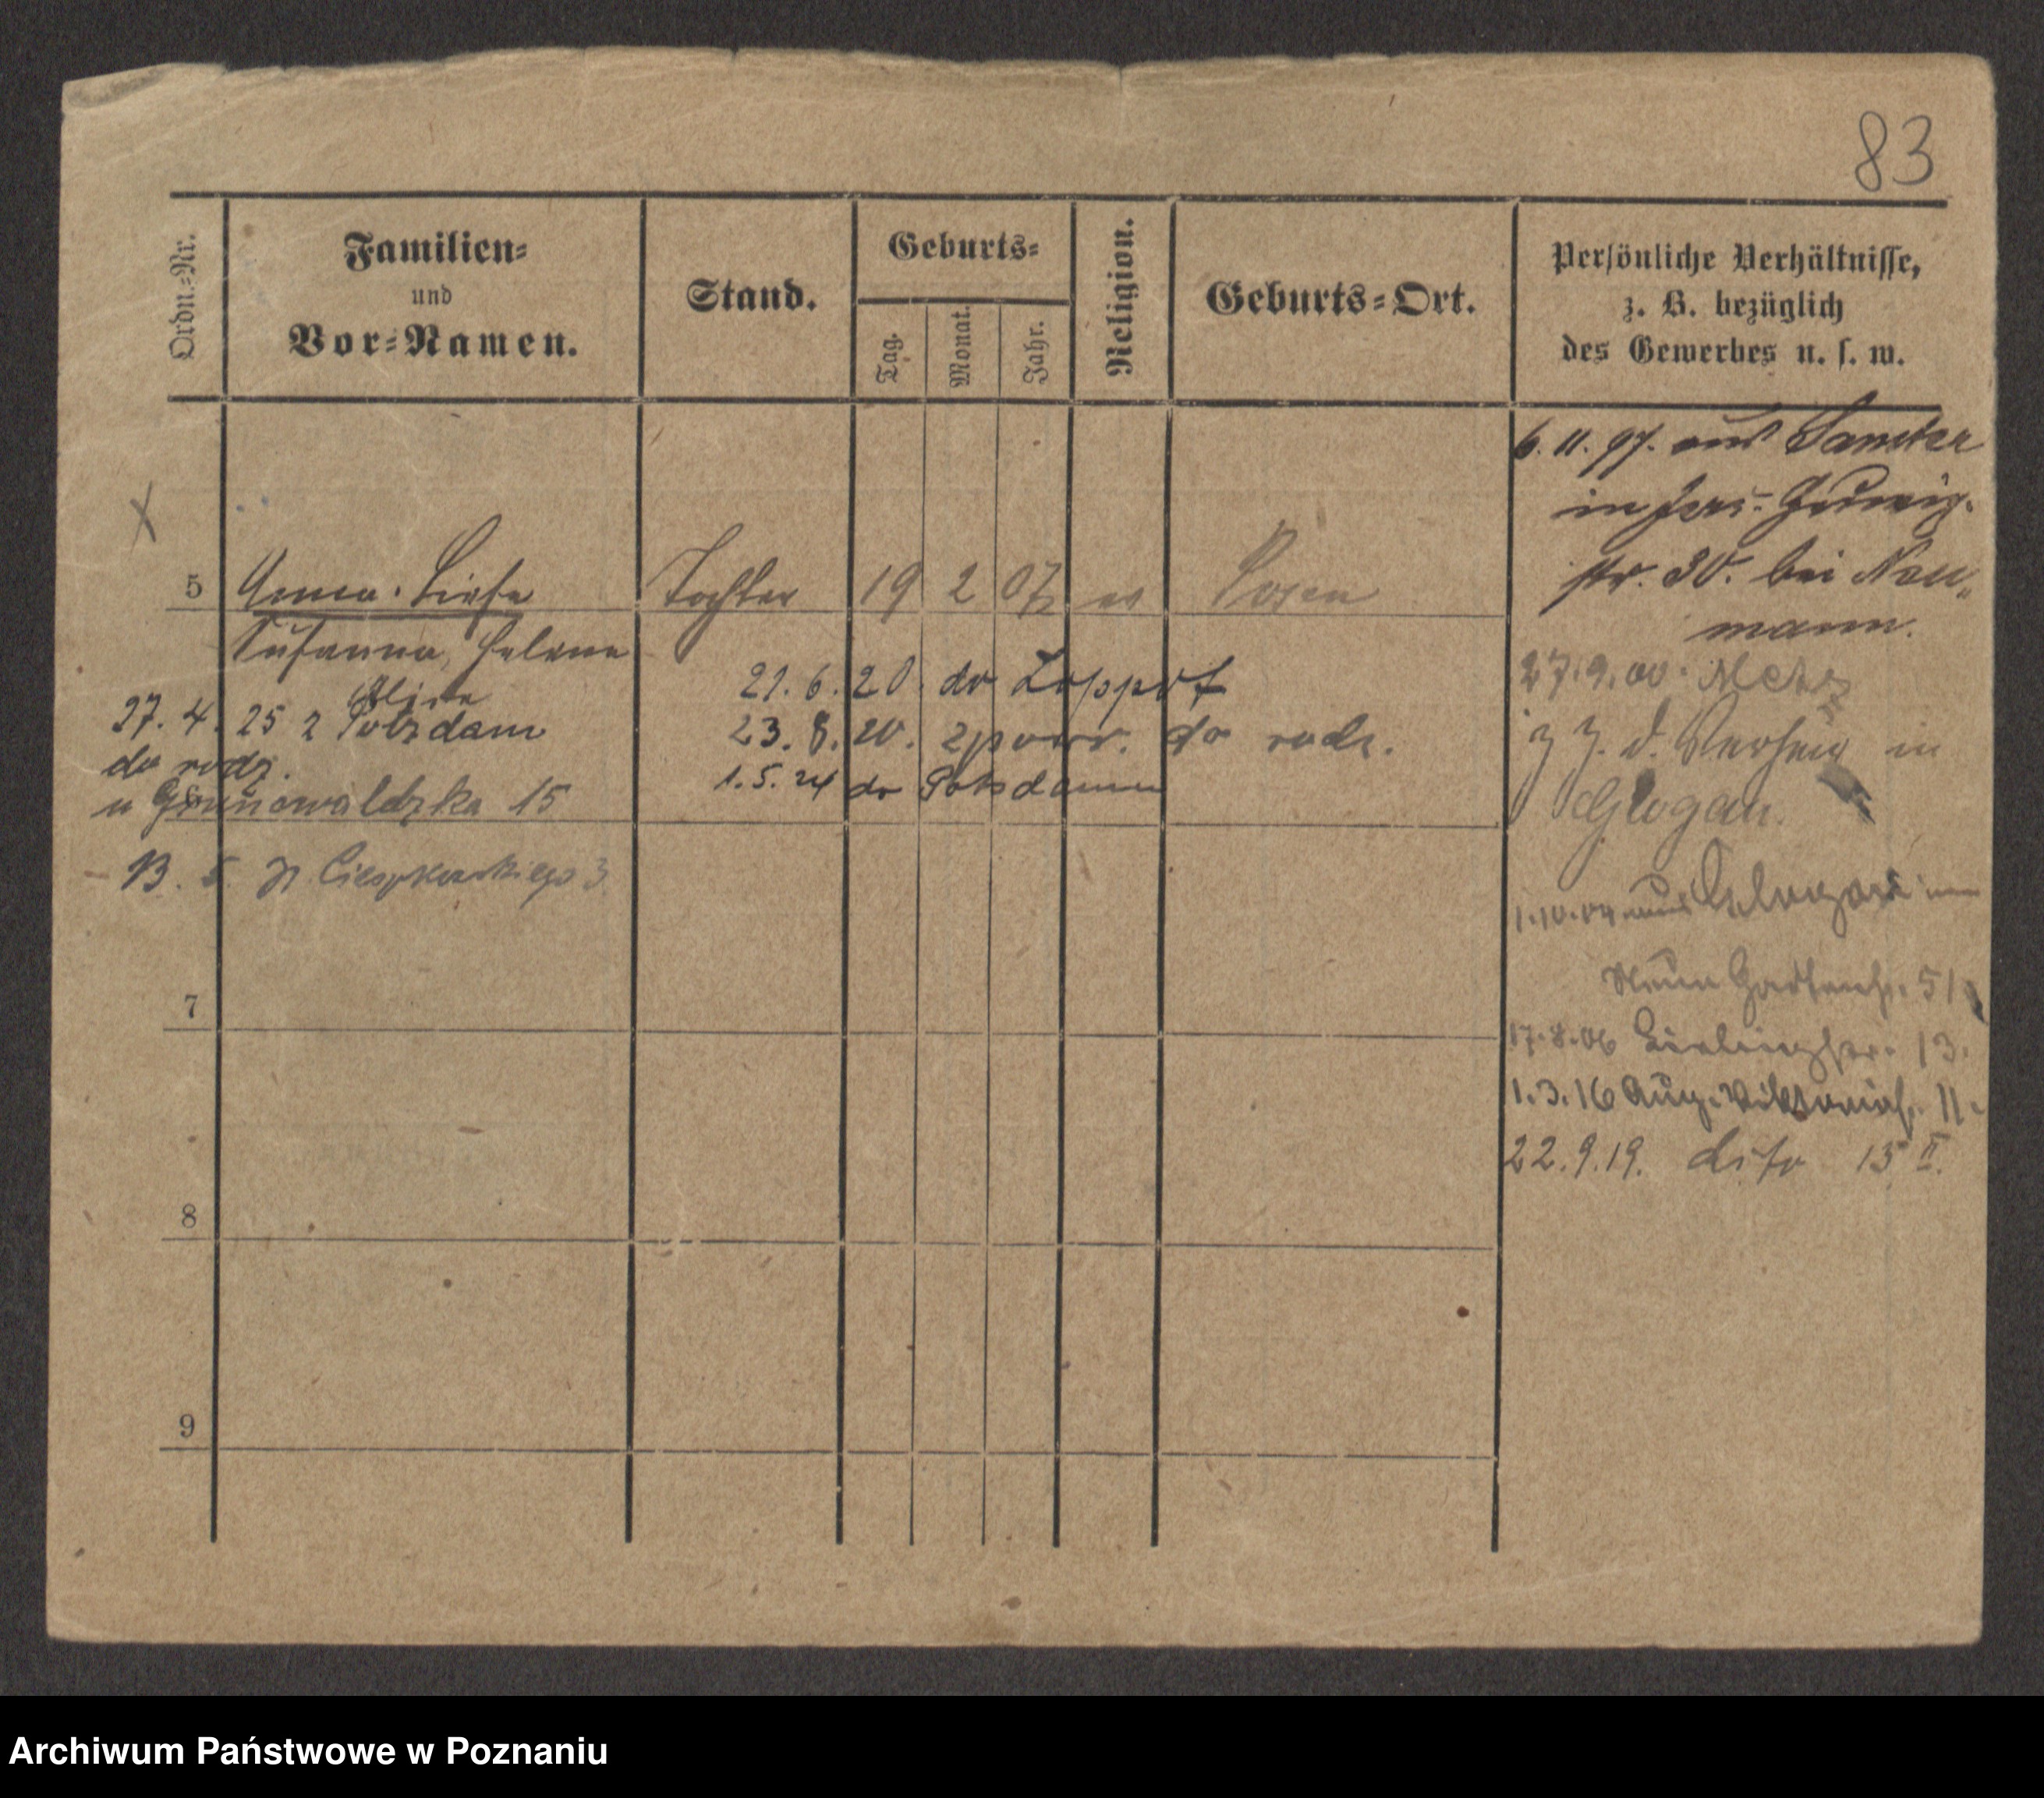 83
Ordn.-Nr.
Familien-
und
Vor-Namen.
Stand.
Geburts-
Tag.
Monat.
Jahr.
Religion.
Geburts-Ort.
Persönliche Verhältnisse,
z. B. bezüglich
des Gewerbes u. s. w.
6. 11. 97. aus Samter
in Jers. Hedwig-
str. 30. bei Nau-
mann.
27.9.00. Metz
z. Z. d. in
Glogau.
1.10.04 aus Glogau
Neue Gartenstr. 51
17.8.06 13.
1.3.16 Aug. Viktoriastr. 11.
22.9.19. dito 15 II.
X
5 Anna-Liese Tochter 19 2 07 ev Posen
Susanna, Helene
Alice
21. 6. 20. do Zoppot
23. 8. 20. z powr. do rodz.
1. 5. 24 do Potsdamu
27. 4. 25 z Potzdam
do rodz.
u Grunowaldzka 15
13. 5. Cieszkowskiego 3
7
8
9
Archiwum Państwowe w Poznaniu